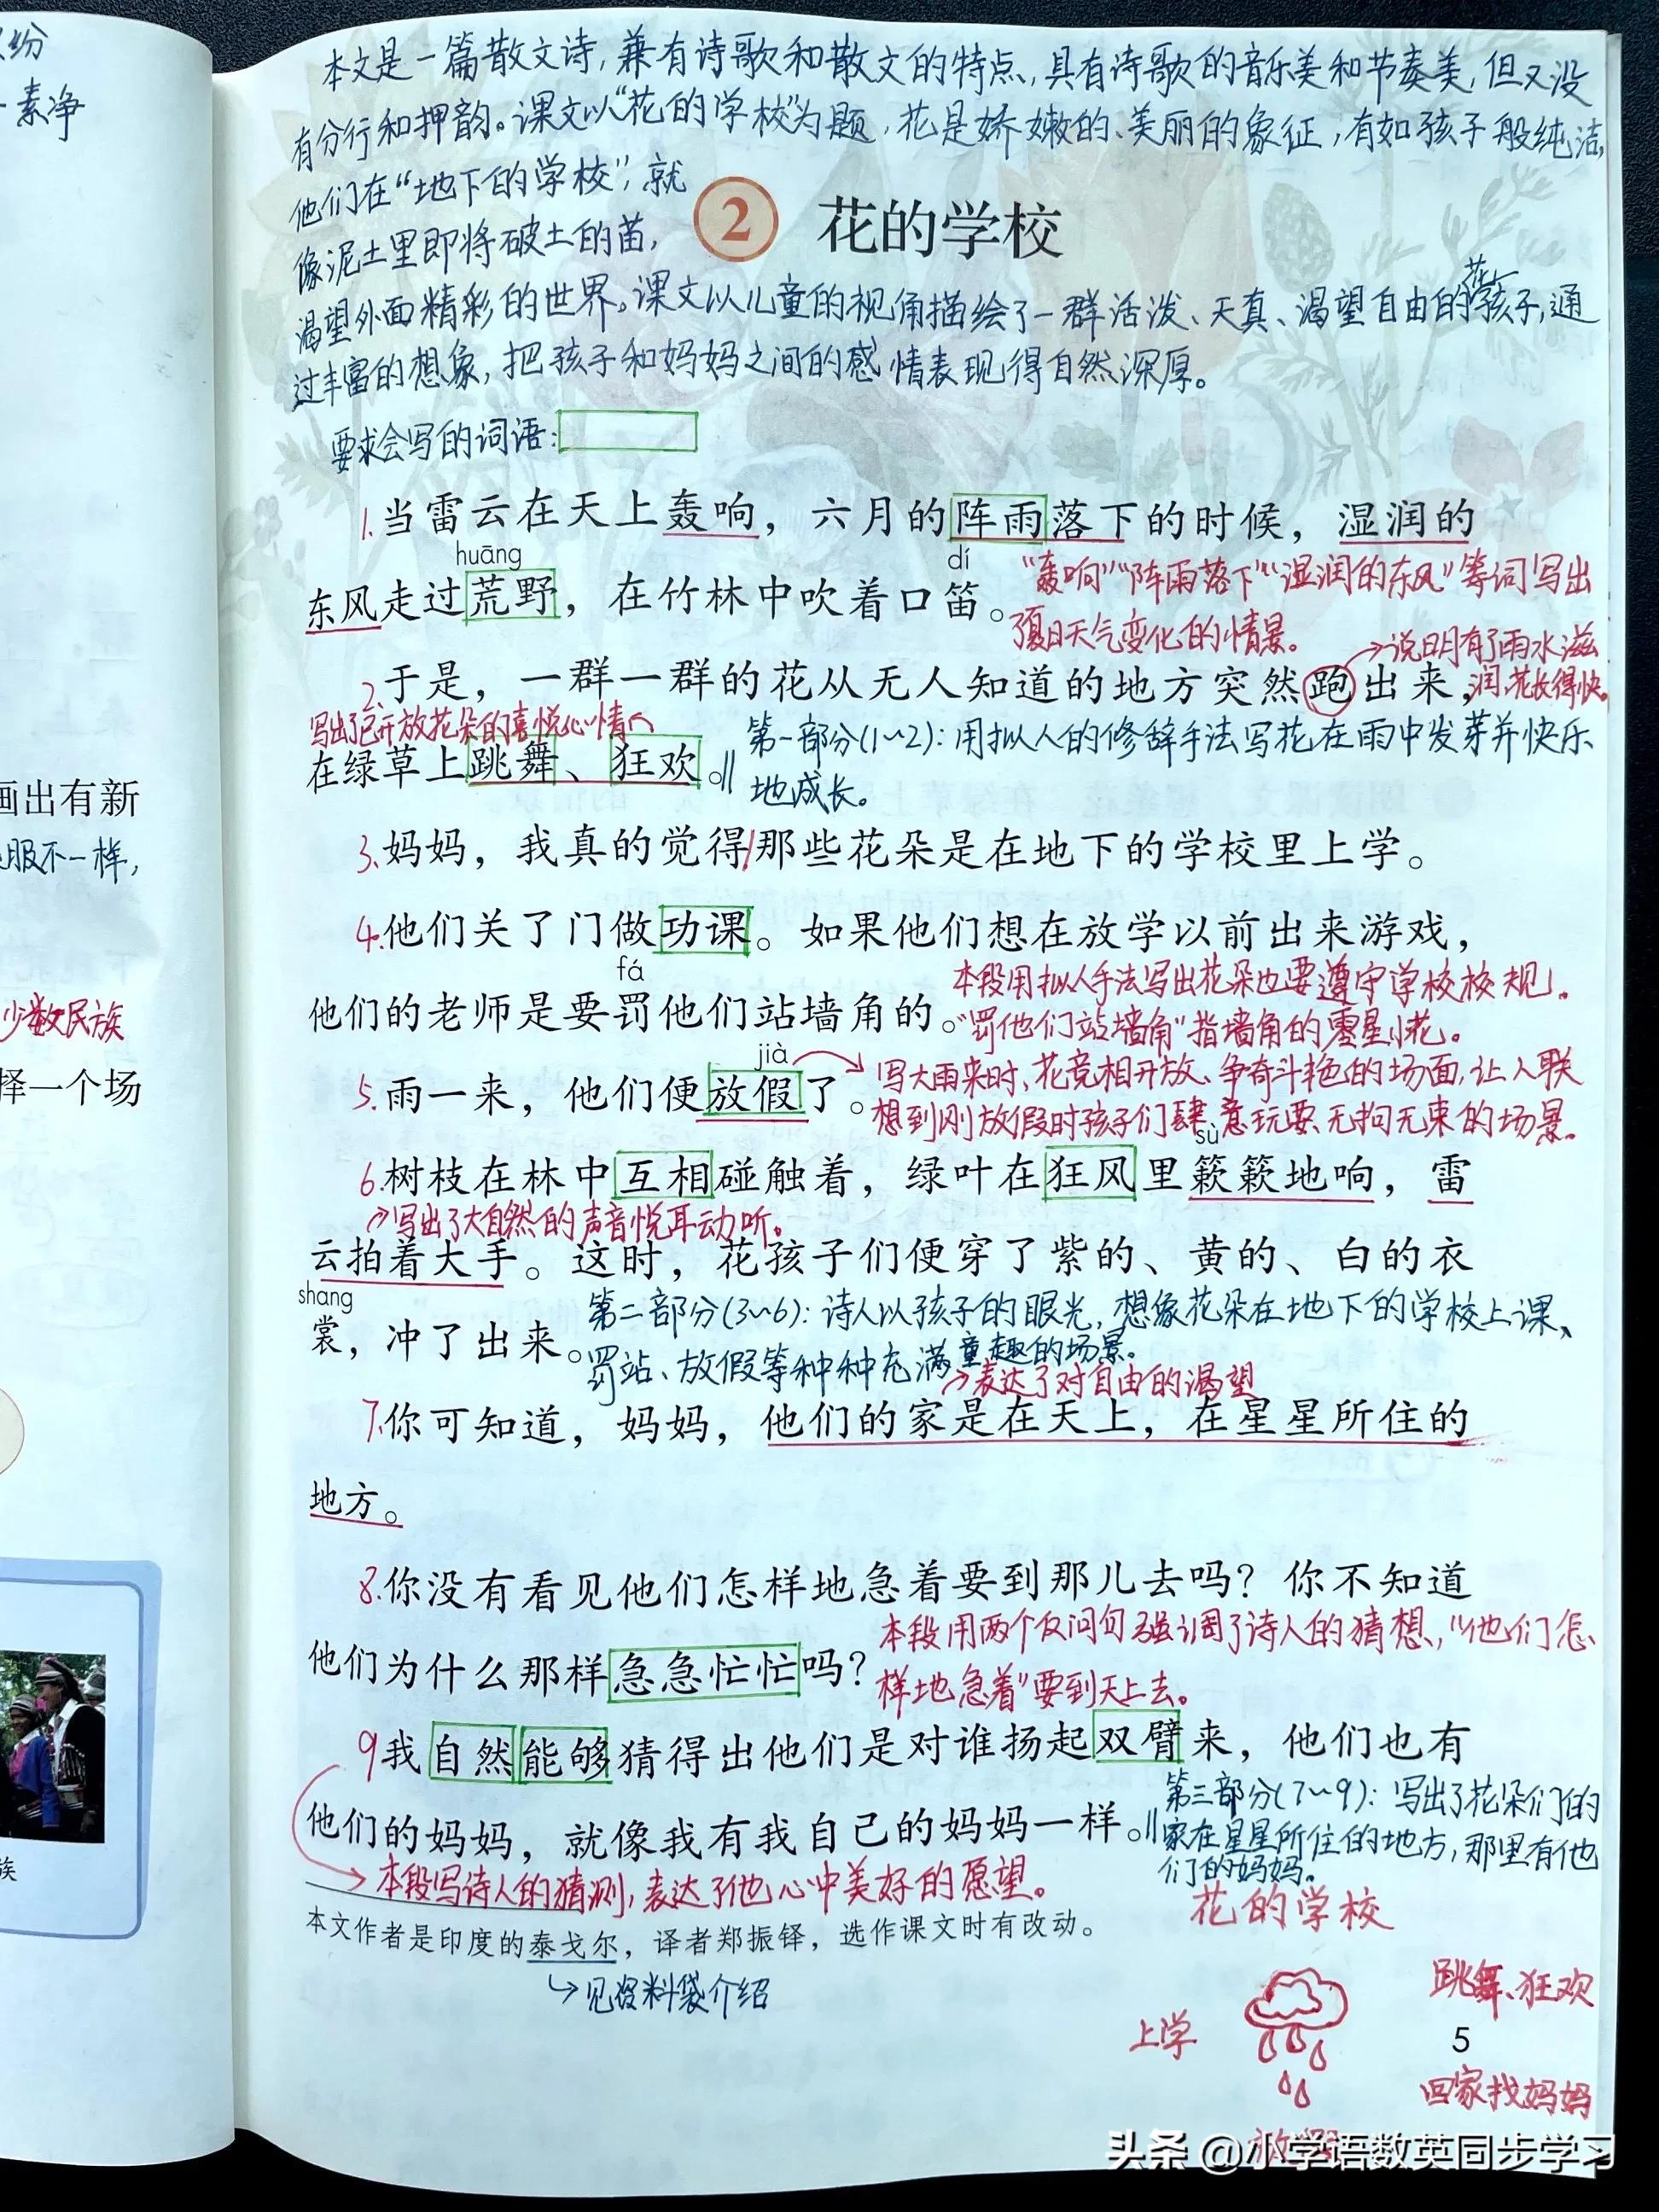 纷
素净
画出有新
服不一样,
少数民族
择一个场
族
本文是一篇散文诗,兼有诗歌和散文的特点,具有诗歌的音乐美和节奏美,但又没
有分行和押韵。课文以“花的学校”为题,花是娇嫩的、美丽的象征,有如孩子般纯洁,
他们在“地下的学校”,就
像泥土里即将破土的苗,
② 花的学校
渴望外面精彩的世界。课文以儿童的视角描绘了一群活泼、天真、渴望自由的花孩子,通
过丰富的想象,把孩子和妈妈之间的感情表现得自然深厚。
要求会写的词语:
1.当雷云在天上轰响,六月的阵雨落下的时候,湿润的
huāng dí
东风走过荒野,在竹林中吹着口笛。
“轰响”“阵雨落下”“湿润的东风”等词写出
了夏日天气变化的情景。
→说明有了雨水滋
润,花长得快。
2.于是,一群一群的花从无人知道的地方突然跑出来,
写出了已开放花朵的喜悦心情
在绿草上跳舞、狂欢。
第一部分(1~2):用拟人的修辞手法写花在雨中发芽并快乐
地成长。
3.妈妈,我真的觉得/那些花朵是在地下的学校里上学。
4.他们关了门做功课。如果他们想在放学以前出来游戏,
fá
他们的老师是要罚他们站墙角的。
本段用拟人手法写出花朵也要遵守学校校规。
“罚他们站墙角”指墙角的零星小花。
jià
5.雨一来,他们便放假了。
写大雨来时、花竞相开放、争奇斗艳的场面,让人联
想到刚放假时孩子们肆意玩耍、无拘无束的场景。
sù
6.树枝在林中互相碰触着,绿叶在狂风里簌簌地响,雷
→写出了大自然的声音悦耳动听。
云拍着大手。这时,花孩子们便穿了紫的、黄的、白的衣
shang
裳,冲了出来。
第二部分(3~6):诗人以孩子的眼光,想象花朵在地下的学校上课、
罚站、放假等种种充满童趣的场景。
→表达了对自由的渴望
7.你可知道,妈妈,他们的家是在天上,在星星所住的
地方。
8.你没有看见他们怎样地急着要到那儿去吗?你不知道
他们为什么那样急急忙忙吗?
本段用两个反问句强调了诗人的猜想,“他们怎
样地急着”要到天上去。
9我自然能够猜得出他们是对谁扬起双臂来,他们也有
他们的妈妈,就像我有我自己的妈妈一样。
第三部分(7~9):写出了花朵们的
家在星星所住的地方,那里有他
们的妈妈。
→本段写诗人的猜测,表达了他心中美好的愿望。
本文作者是印度的泰戈尔,译者郑振铎,选作课文时有改动。
→见资料袋介绍
花的学校
跳舞、狂欢
上学
5
回家找妈妈
头条 @小学语数英同步学习